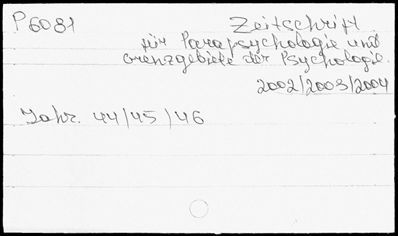 P6081 Zeitschrift
für Parapsychologie und
Grenzgebiete der Psychologie.
2002/2003/2004
Jahr. 44/45/46